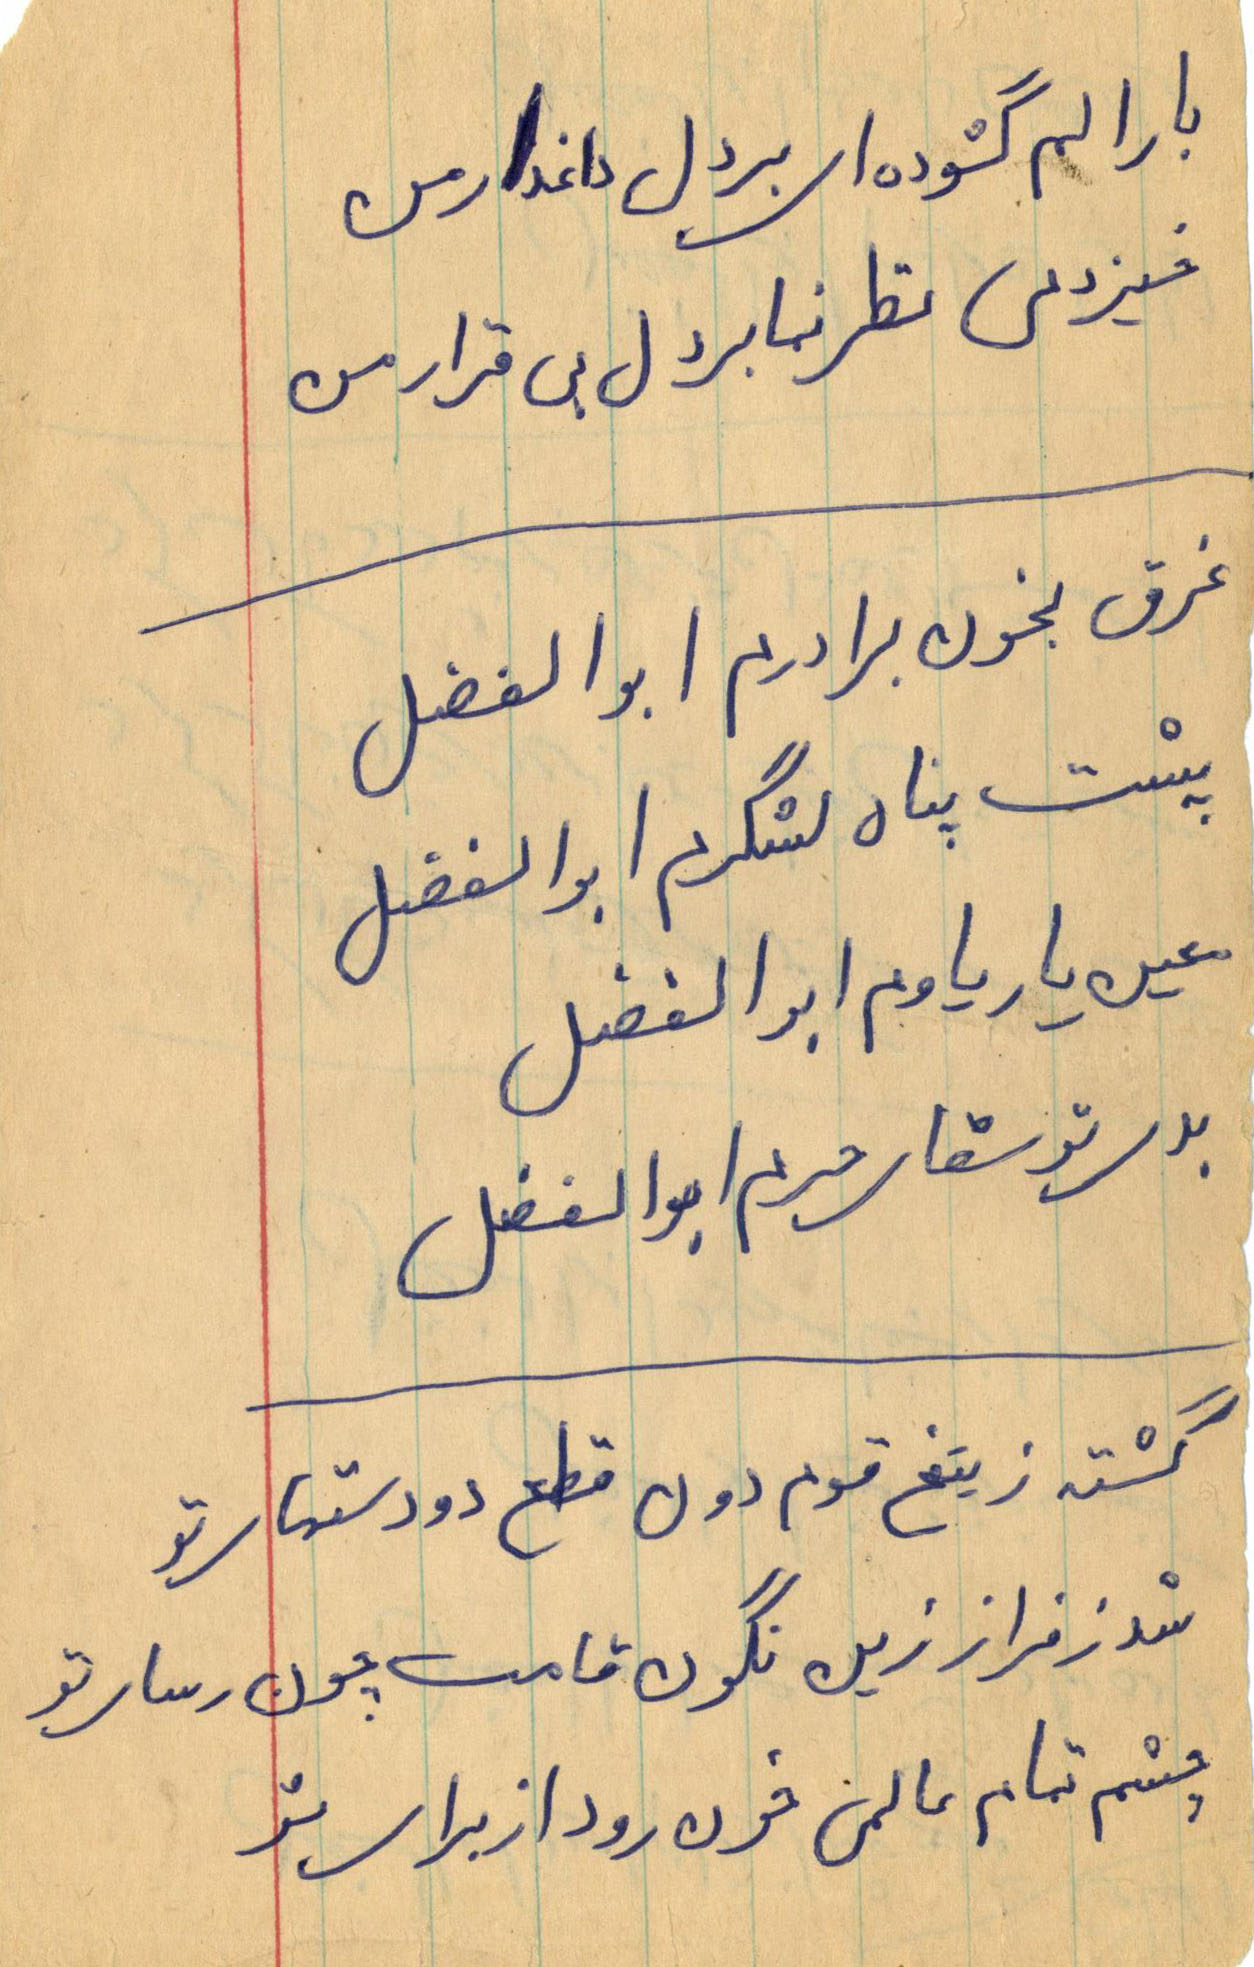 بار الم گشوده ای بر دل داغدار من
خیز دمی نظر نما بر دل بی قرار من
غرق بخون برادرم ابوالفضل
پشت پناه لشگرم ابوالفضل
معین یار یاورم ابوالفضل
بدی تو سقای حرم ابوالفضل
گشته ز تیغ قوم دون قطع دو دستهای تو
شد ز فراز زین نگون قامت چون رسای تو
چشم تمام عالمی خون رود از برای تو